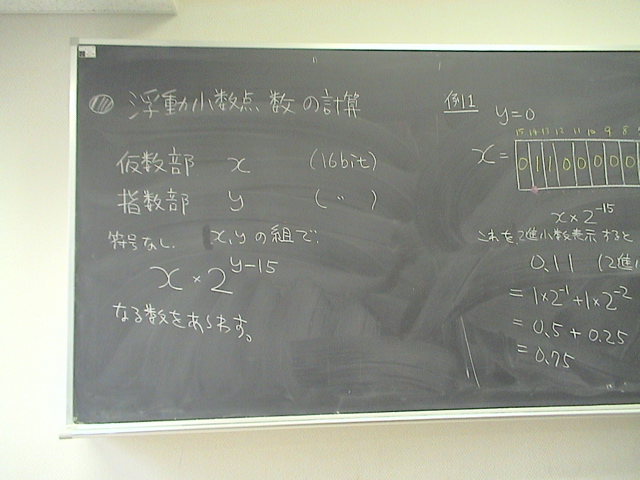 浮動小数点数の計算
仮数部 x (16bit)
指数部 y ( 〃 )
符号なし. x,yの組で.
x × 2^{y-15}
なる数をあらわす。
例1 y=0
15 14 13 12 11 10 9 8
x = 0 1 1 0 0 0 0 0
x × 2^{-15}
これを,2進小数表示すると
0.11 (2進
= 1×2^{-1}+1×2^{-2}
= 0.5 + 0.25
= 0.75